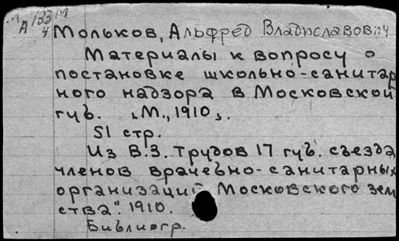 А 122/4
Мольков, Альфред Владиславович
Материалы к вопросу о
постановке школьно-санитар
ного надзора в Московской
губ. "М., 1910".
51 стр.
Из В.З. Трудов 17 губ. съезда
членов врачебно-санитарных
организаций Московского зем
ства". 1910.
Библиогр.